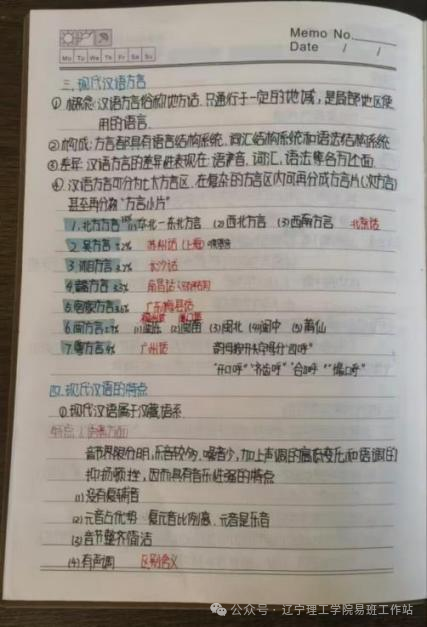 Memo No.
Date / /
Mo Tu We Th Fr Sa Su
三.现代汉语方言
①概念:汉语方言俗称地方话.只通行于一定的地域,是局部地区使
用的语言.
②构成:方言都具有语音结构系统.词汇结构系统和语法结构系统
③差异:汉语方言的差异性表现在:语音.词汇.语法等各方面.
④.汉语方言可分为七大方言区.在复杂的方言区内可再分成方言片(次方言)
甚至再分为"方言小片"
1.北方方言 (1)华北-东北方言 (2)西北方言 (3)西南方言 北京话
2.吴方言 7.2% 苏州话(上海)
3.湘方言 3.2% 长沙话
4.赣方言 3.3% 南昌话
5.客家方言3.6% 广东梅县话
6.闽方言5.7% (1)闽东 (2)闽南 (3)闽北 (4)闽中 (5)莆仙
7.粤方言4% 广州话 韵母按开头字母分"四呼"
"开口呼" "齐齿呼" "合口呼" "撮口呼"
四.现代汉语的特点
①.现代汉语属于汉藏语系.
特点:(语音方面)
音节界限分明,乐音较多,噪音少,加上声调的高低变化和语调的
抑扬顿挫,因而具有音乐性强的特点
(1)没有复辅音
(2)元音占优势 复元音比例高.元音是乐音
(3)音节整齐简洁
(4)有声调 区别意义
公众号·辽宁理工学院易班工作站